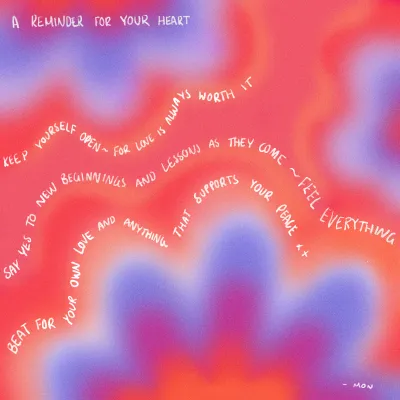 A REMINDER FOR YOUR HEART
KEEP YOURSELF OPEN~ FOR LOVE IS ALWAYS WORTH IT
SAY YES TO NEW BEGINNINGS AND LESSONS AS THEY COME ~ FEEL EVERYTHING
BEAT FOR YOUR OWN LOVE AND ANYTHING THAT SUPPORTS YOUR PEACE
- MON